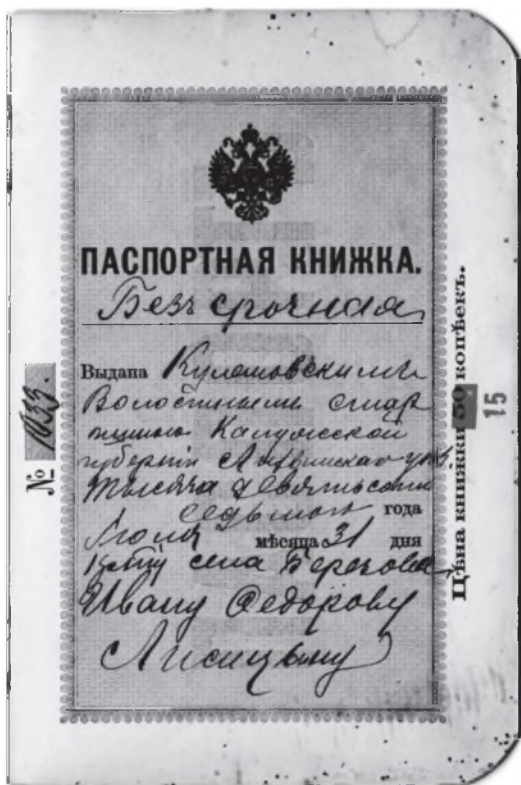 ПАСПОРТНАЯ КНИЖКА.
Безсрочная
Выдана Кулешовскимъ
Волостнымъ стар
шиною Калужской
губерніи Лихвинскаго у
Тысяча девятьсотъ
седьмого года
Іюля мѣсяца 31 дня
села Березова
Ивану Федорову
Лисицыну
№ 1033.
Цѣна книжки копѣекъ.
15